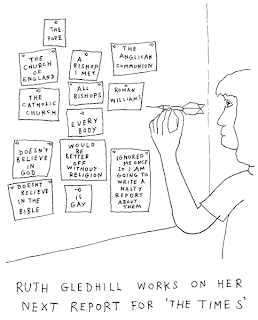 THE
POPE
THE
CHURCH
OF
ENGLAND
A
BISHOP
I MET
THE
ANGLICAN
COMMUNION
THE
CATHOLIC
CHURCH
ALL
BISHOPS
ROWAN
WILLIAMS
EVERY
BODY
DOESN'T
BELIEVE
IN
GOD
WOULD
BE
BETTER
OFF
WITHOUT
RELIGION
IGNORED
ME ONCE
SO I AM
GOING TO
WRITE A
NASTY
REPORT
ABOUT
THEM
DOESN'T
BELIEVE
IN THE
BIBLE
IS
GAY
RUTH GLEDHILL WORKS ON HER
NEXT REPORT FOR 'THE TIMES'